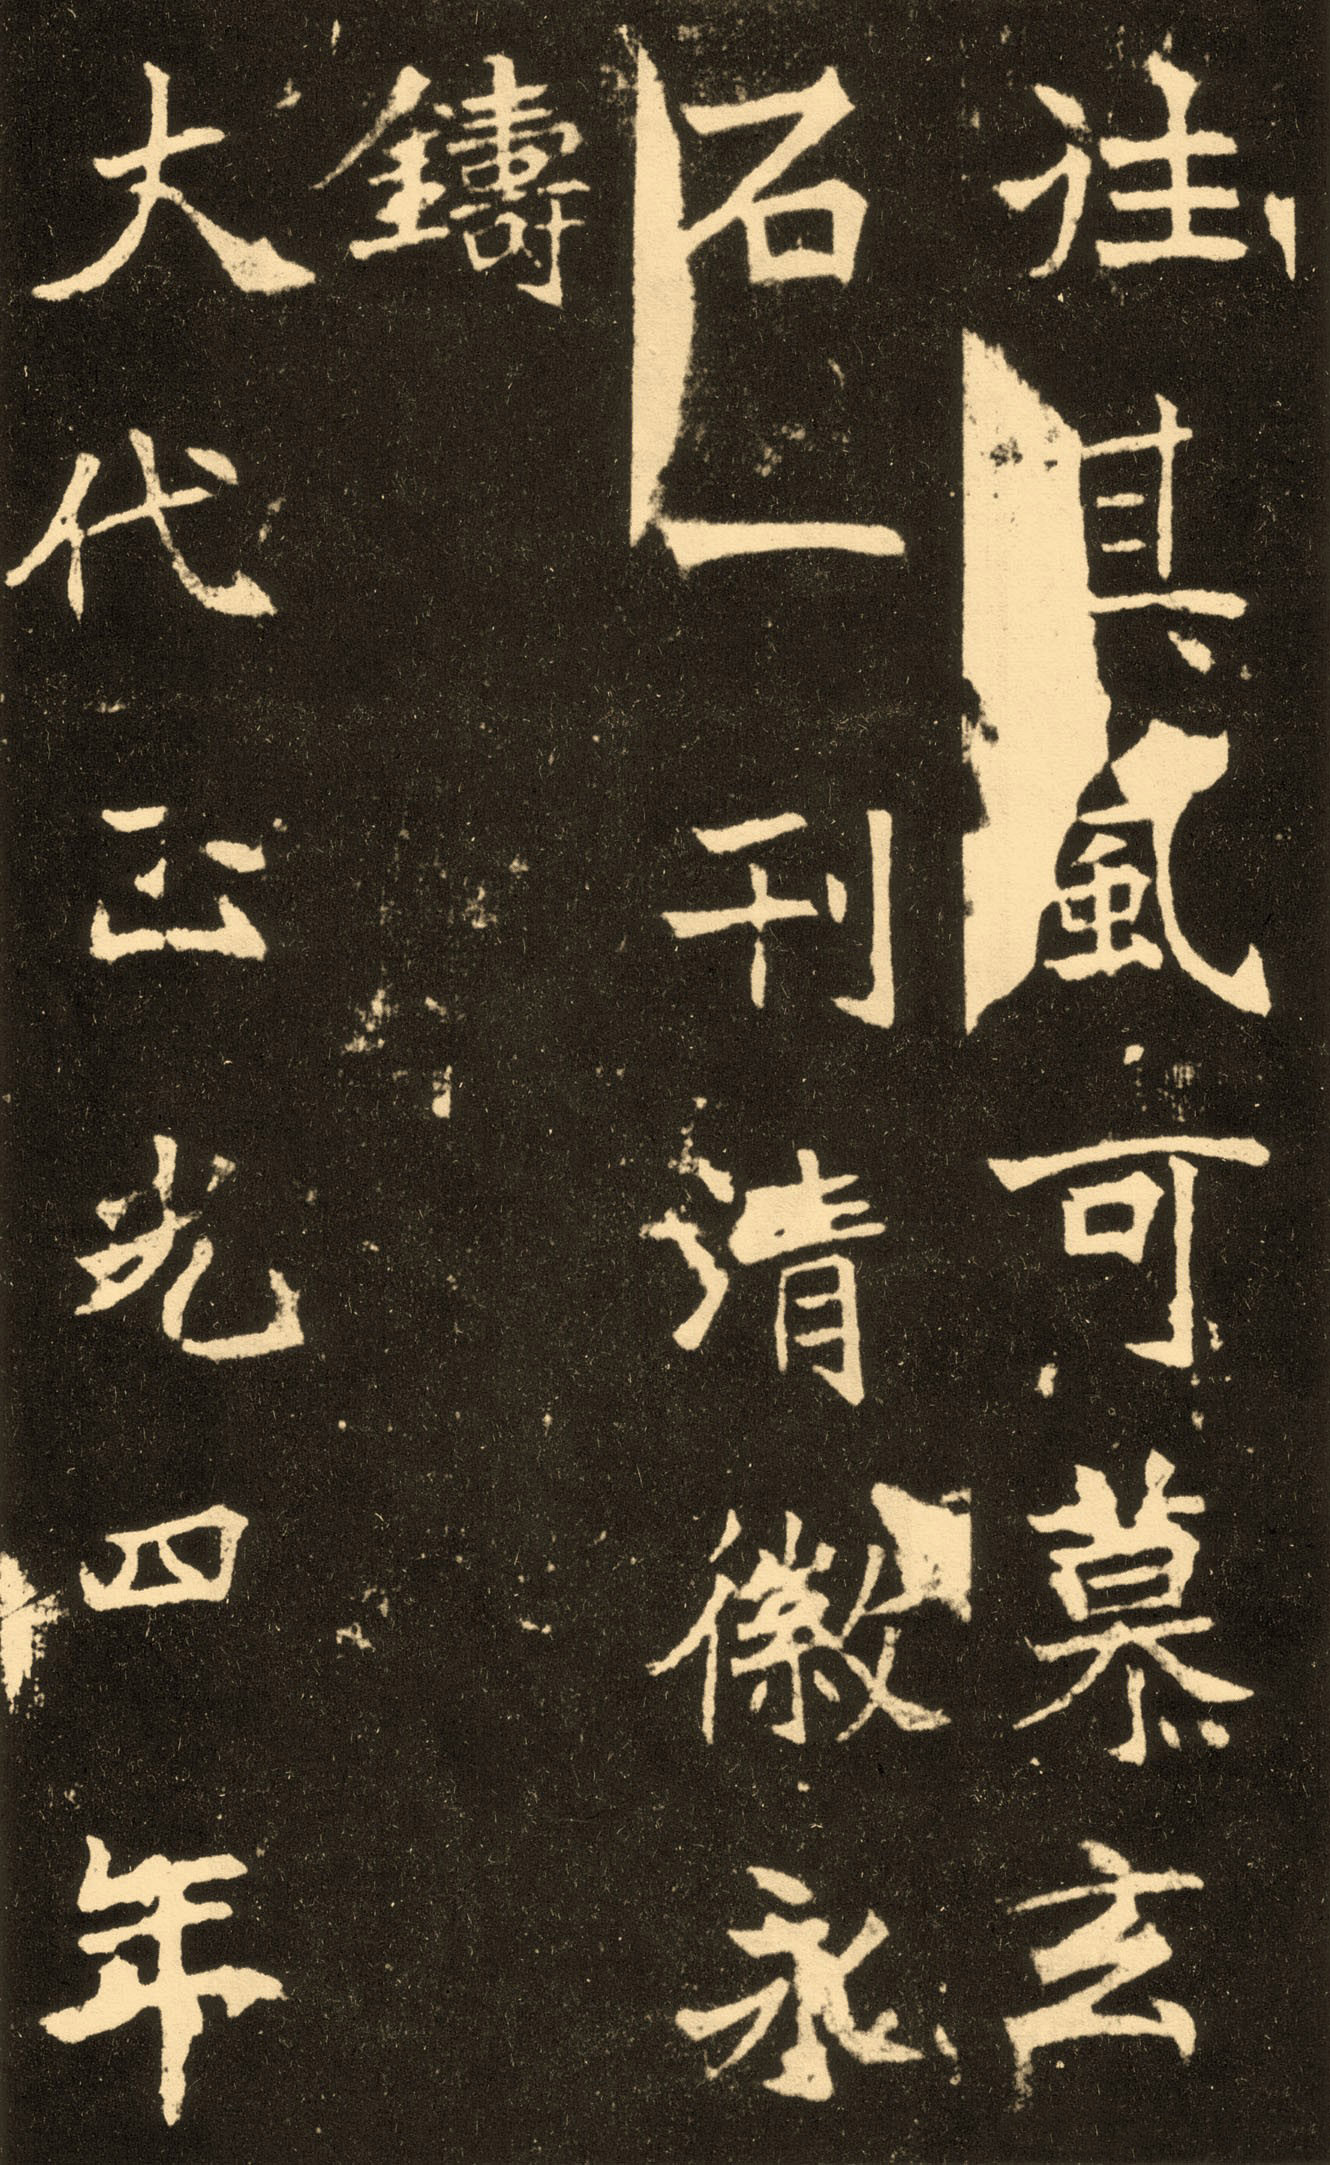 往其風可慕玄
石一刊清徽永
鑄
大代正光四年